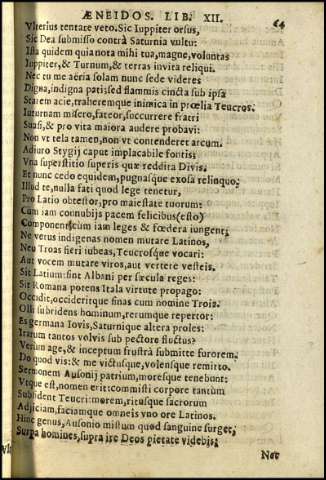 ÆNEIDOS. LIB. XII.
64
Vlterius tentare veto. Sic Iuppiter orsus,
Sic Dea submisso contrà Saturnia vultu:
Ista quidem quia nota mihi tua, magne, voluntas
Iuppiter, & Turnum, & terras invita reliqui.
Nec tu me aëria solam nunc sede videres
Digna, indigna pati: sed flammis cincta sub ipsa
Starem acie, traheremque inimica in prœlia Teucros.
Iuturnam misero, fateor, succurrere fratri
Suasi, & pro vita maiora audere probavi:
Non vt tela tamen, non vt contenderet arcum.
Adiuro Stygij caput implacabile fontis:
Vna superstitio superis quæ reddita Divis.
Et nunc cedo equidem, pugnasque exosa relinquo,
Illud te, nulla fati quod lege tenetur,
Pro Latio obtestor, pro maiestate tuorum:
Cum iam connubijs pacem felicibus (esto)
Component; cum iam leges & fœdera iungent;
Ne verus indigenas nomen mutare Latinos,
Neu Troas fieri iubeas, Teucrosque vocari:
Aut vocem mutare viros, aut vertere vesteis.
Sit Latium: sint Albani per sæcula reges:
Sit Romana potens Itala virtute propago:
Occidit, occideritque sinas cum nomine Troia.
Olli subridens hominum, rerumque repertor:
Es germana Iovis, Saturnique altera proles:
Irarum tantos volvis sub pectore fluctus?
Verùm age, & inceptum frustrà submitte furorem.
Do quod vis: & me victusque, volensque remitto.
Sermonem Ausonij patrium, moresque tenebunt:
Vtque est, nomen erit: commisti corpore tantùm
Subsident Teucri: morem, ritusque sacrorum
Adjiciam, faciamque omneis vno ore Latinos.
Hinc genus, Ausonio mistum quod sanguine surget,
Supra homines, supra ire Deos pietate videbis:
Nec